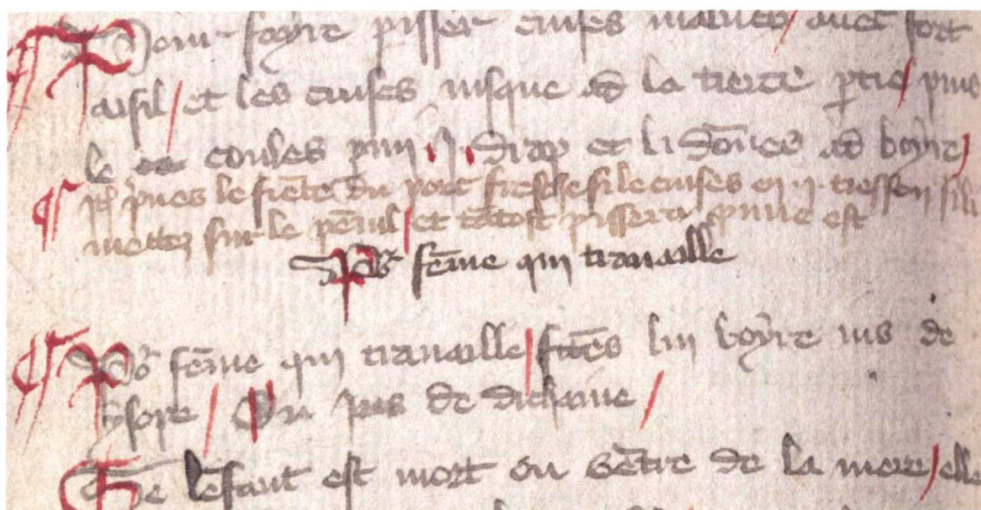 Pour fayre pisser cuises mauues / auec fort
aisil / et les cuises iusque ad la tierce ptie / puis
le coules pmi .j. drap et li dōnes ad boyre /
pñes le fiēte du porc fresche si le cuises en
mettes sur le pēnil / et tātost pissera est
Por fēme qui trauaille
Por fēme qui trauaille / faites lui boyre ius de
ysope / Ou ius de ditaine /
Se lēfant est mort ou vētre de la mere / elle